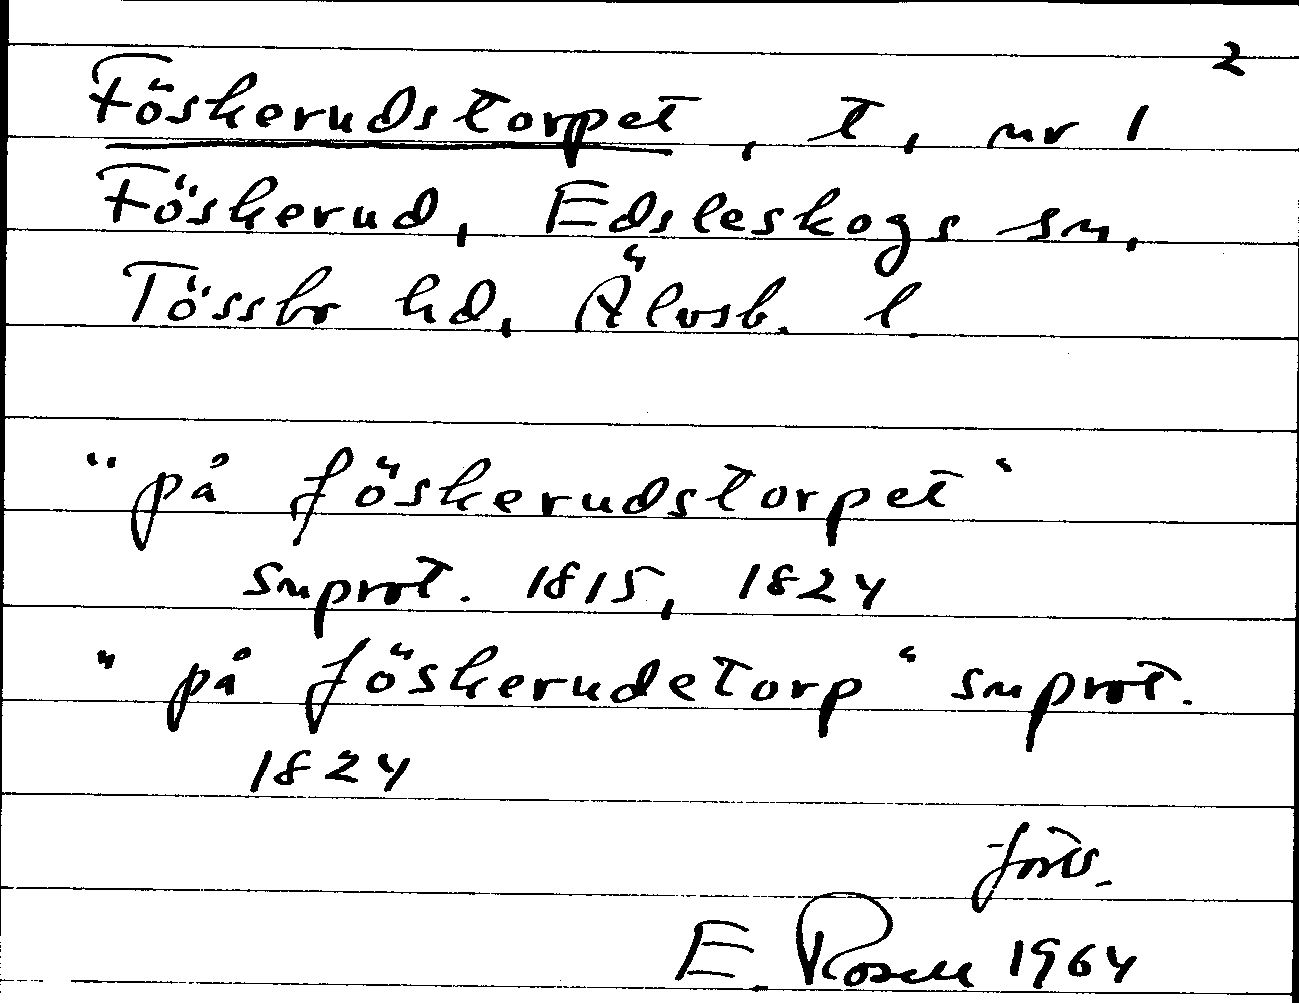 2
Föskerudstorpet, t, nr 1
Föskerud, Edsleskogs sn,
Tössbo hd, Älvsb. l.
"på föskerudstorpet"
snprot. 1815, 1824
"på föskerudetorp" snprot.
1824
forts.
E. Rosell 1964